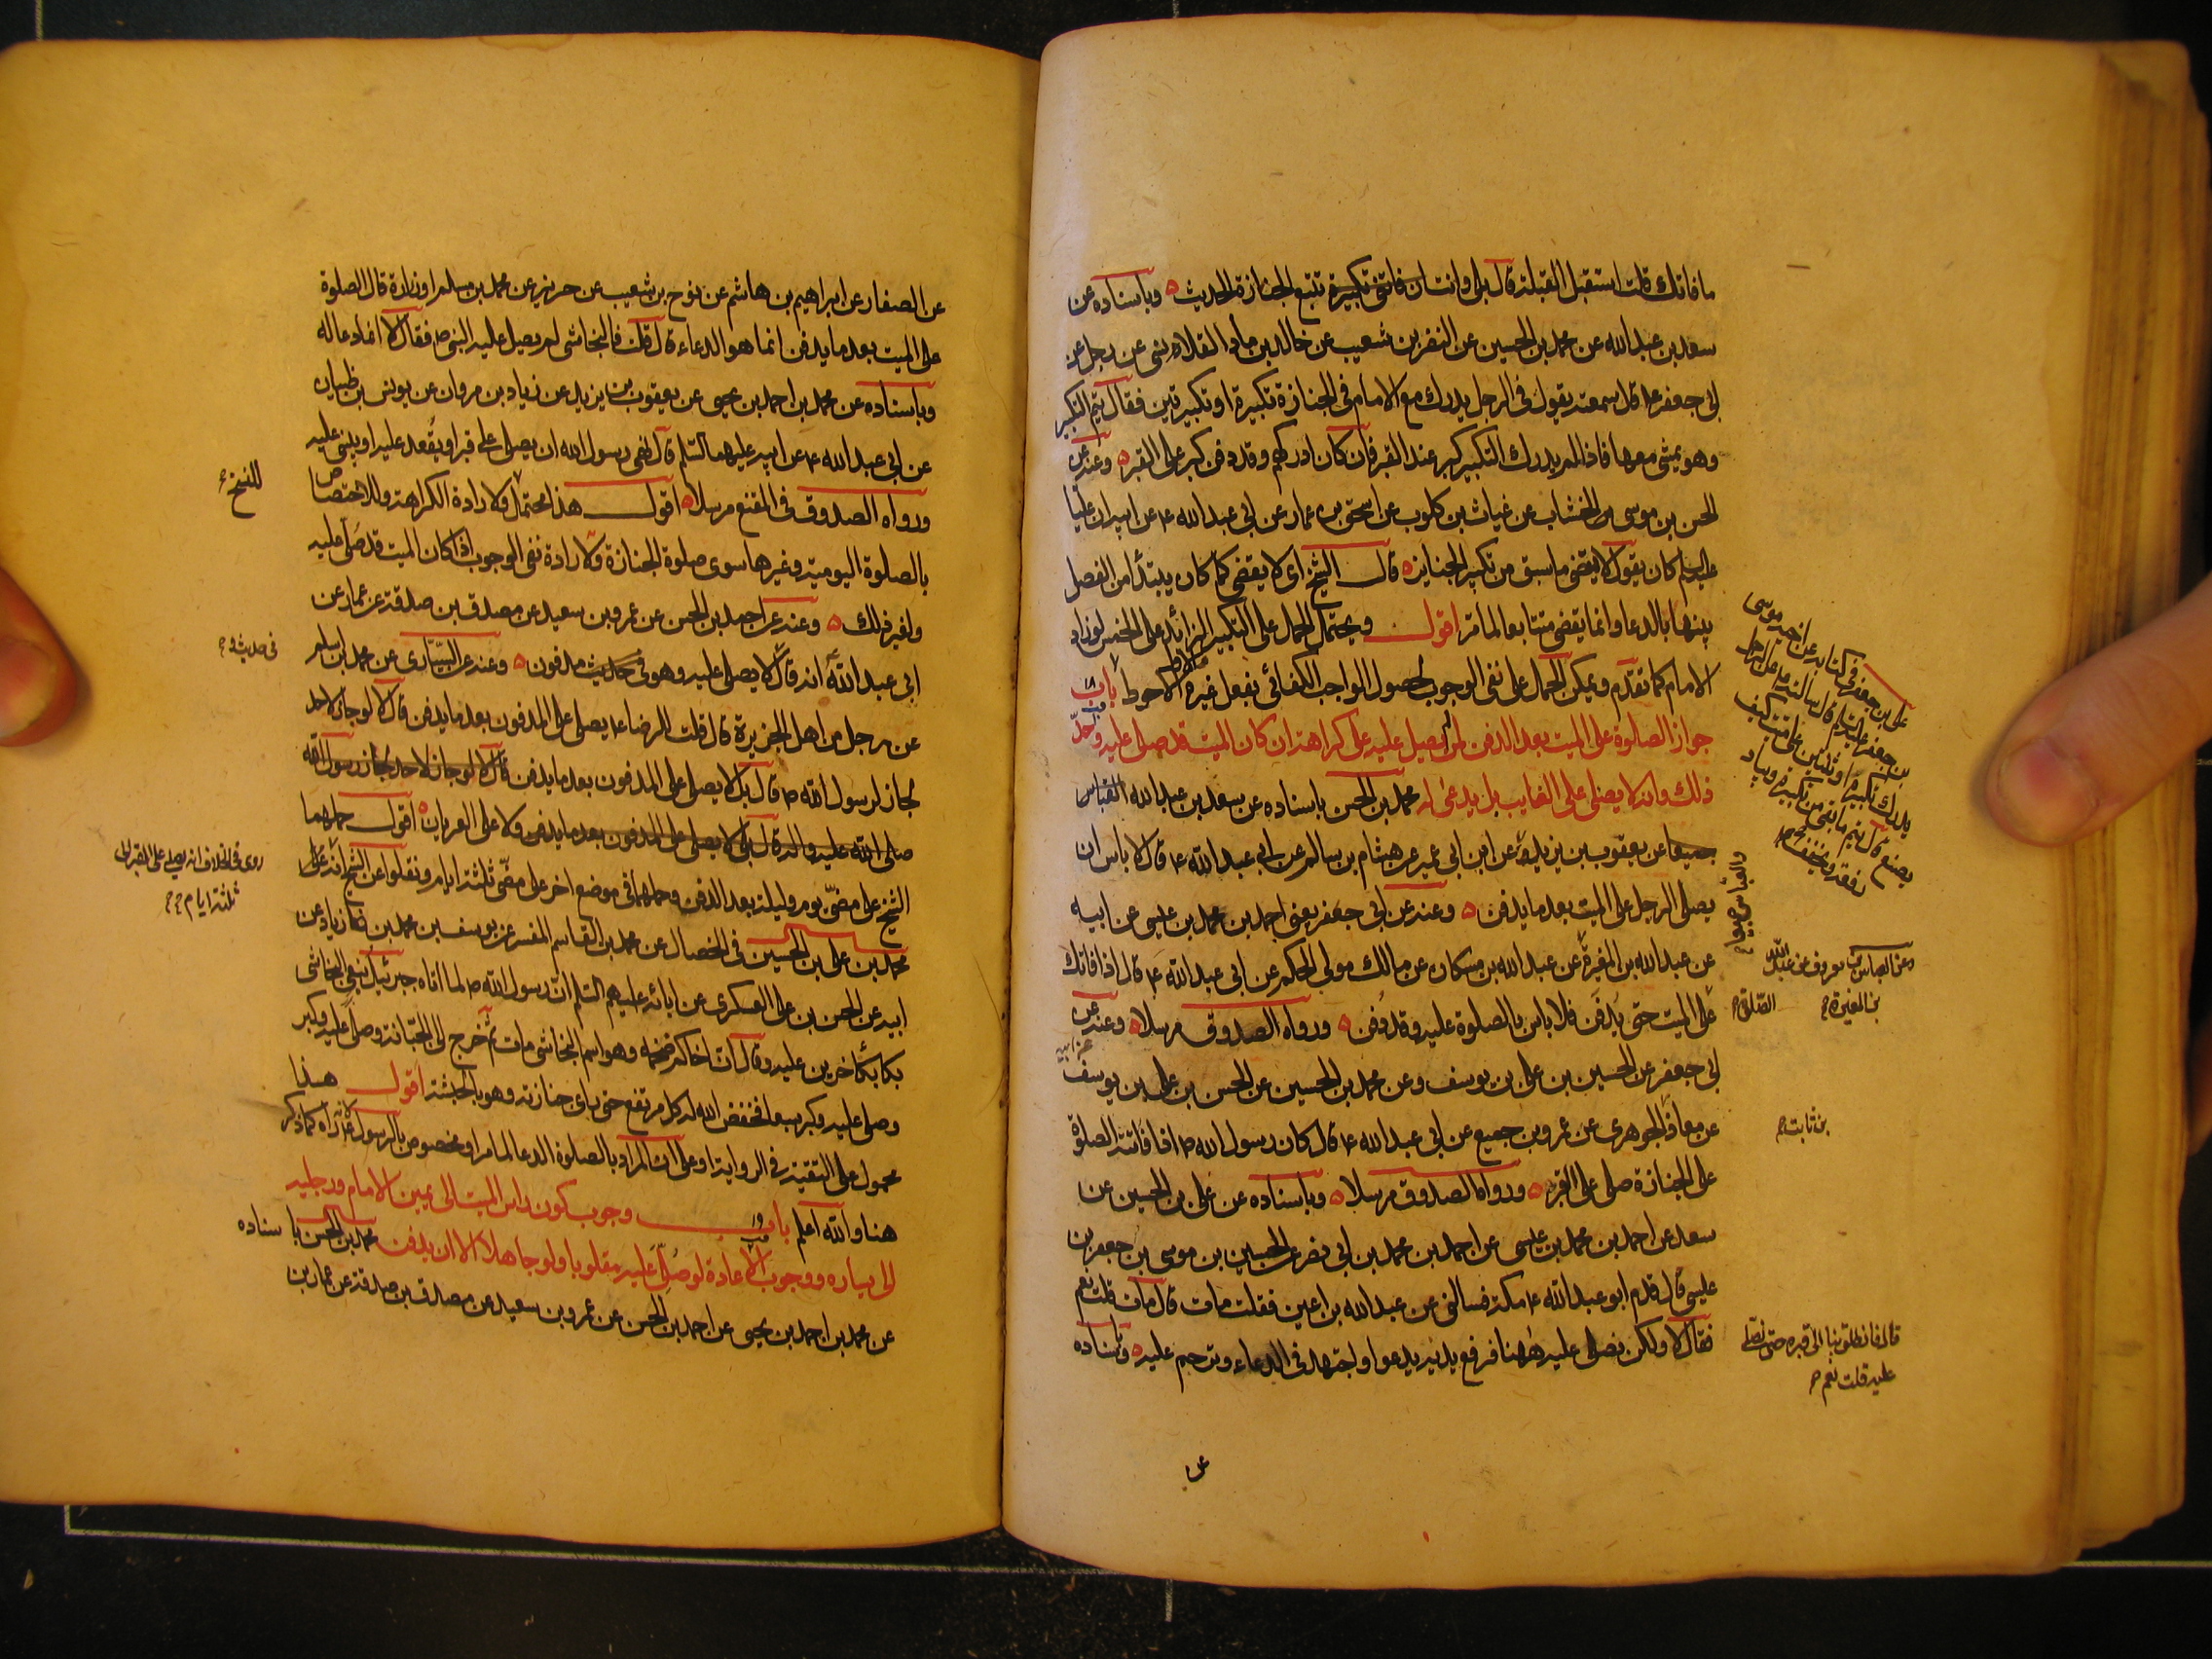 ما فاتك قلت استقبل القبلة قال بلى وانت تتبع الجنازة الحديث وباسناده عن
سعد بن عبد الله عن محمد بن الحسين عن النضر بن شعيب عن خالد بن ماد القلانسى عن رجل عن
ابى جعفر ع قال سمعته يقول فى الرجل يدرك مع الامام فى الجنازة تكبيرة او تكبيرتين فقال يتم التكبير
وهو يمشى معها فاذا لم يدرك التكبير كبر عند القبر فان كان ادركهم وقد دفن كبر على القبر وعنه عن
الحسن بن موسى الخشاب عن غياث بن كلوب عن اسحق بن عمار عن ابى عبد الله ع عن ابيه ان عليا
عليه السلم كان يقول لا يقضى ما سبق من تكبير الجنايز قال الشيخ اى لا يقضى كما كان يبتدأ من الفصل
بينها بالدعا وانما يقضى متتابعا لما مر اقول ويحتمل الحمل على التكبير الزائد على الخمس لو زاد
الامام كما تقدم ويمكن الحمل على نفى الوجوب لحصول الواجب الكفائى بفعل غيره الاحوط باب
جواز الصلوة على الميت بعد الدفن لمن لم يصل عليه على كراهة ان كان الميت قد صلى عليه وحد
ذلك وانه لا يصلى على الغايب بل يدعى له محمد بن الحسن باسناده عن سعد بن عبد الله
جميعا عن يعقوب بن يزيد عن ابن ابى عمير عن هشام بن سالم عن ابى عبد الله ع قال لا باس ان
يصلى الرجل على الميت بعد ما يدفن وعنه عن ابى جعفر يعنى احمد بن محمد بن عيسى عن ابيه
عن عبد الله بن المغيرة عن عبد الله بن مسكان عن مالك مولى الحكم عن ابى عبد الله ع قال اذا فاتك
على الميت حتى يدفن فلا باس بالصلوة عليه وقد دفن ورواه الصدوق مرسلا وعنه عن
ابى جعفر عن الحسين بن على بن يوسف وعن محمد بن الحسين عن الحسن بن على بن يوسف
عن معاذ الجوهرى عن عمرو بن جميع عن ابى عبد الله ع قال كان رسول الله ص اذا فاتته الصلوة
على الجنازة صلى على القبر ورواه الصدوق مرسلا وباسناده عن على بن الحسين عن
سعد عن احمد بن محمد بن عيسى عن احمد بن محمد بن ابى نصر عن الحسين بن موسى بن جعفر بن
عيسى قال قدم ابو عبد الله ع مكة فسالنى عن عبد الله بن اعين فقلت مات قال مات قلت نعم
فقال لا ولكن نصلى عليه ههنا فرفع يديه يدعو واجتهد فى الدعاء وترحم عليه وباسناده
على بن جعفر فى كتابه عن اخيه موسى
بن جعفر عليه السلام قال سالته عن الرجل
يدرك تكبيرة او ثنتين على ميت كيف
يصنع قال يتم ما بقى من تكبيره ويبادر
رفعه ويخفف
وعن العباس بن معروف عن عبد الله
بن المغيرة
الصلوة
عن ابيه
بن ثابت
قال فانطلق بنا الى قبره حتى نصلى
عليه قلت نعم
عن
عن الصفار عن ابراهيم بن هاشم عن نوح بن شعيب عن حريز عن محمد بن مسلم او زرارة قال الصلوة
على الميت بعد ما يدفن انما هو الدعاء قال قلت فالنجاشى لم يصل عليه النبى ص فقال لا انما دعا له
وباسناده عن محمد بن احمد بن يحيى عن يعقوب بن يزيد عن زياد بن مروان عن يونس بن ظبيان
عن ابى عبد الله ع عن ابيه عليهما السلم قال نهى رسول الله ان يصلى على قبر او يقعد عليه او يبنى عليه
ورواه الصدوق فى المقنع مرسلا اقول هذا محتمل لارادة الكراهة وللاختصاص
بالصلوة اليومية وغيرها سوى صلوة الجنازة ولارادة نفى الوجوب اذا كان الميت قد صلى عليه
ولغير ذلك وعنه عن احمد بن الحسن عن عمرو بن سعيد عن مصدق بن صدقة عن عمار عن
ابى عبد الله انه قال لا يصلى عليه وهو مدفون وعنه عن السيارى عن محمد بن اسلم
عن رجل من اهل الجزيرة قال قلت للرضا ع يصلى على المدفون بعد ما يدفن قال لا لو جاز لاحد
لجاز لرسول الله ص قال بل لا يصلى على المدفون بعد ما يدفن
ولا على العريان اقول حملهما
الشيخ على مضى يوم وليلة بعد الدفن وحملهما فى موضع اخر على مضى ثلثة ايام ونقلوا عن الشيخ انه
محمد بن على بن الحسين فى الخصال عن محمد بن القاسم المفسر عن يوسف بن محمد بن زياد عن
ابيه عن الحسن بن على العسكرى عن ابائه عليهم السلم ان رسول الله ص لما اتاه جبرئيل بنعى النجاشى
بكا بكا حزين عليه وقال ان اخاكم اصحمة وهو اسم النجاشى مات ثم خرج الى الجبانة وصلى عليه وكبر
وصلى عليه وكبر سبعا فخفض الله له كل مرتفع حتى راى جنازته وهو بالحبشة اقول هذا
محمول على التقية فى الرواية او على ان المراد بالصلوة الدعا لما مر او مخصوص بالرسول لانه راه كما ذكر
هنا والله اعلم باب وجوب كون راس الميت الى يمين الامام ورجليه
الى يساره ووجوب الاعادة لو صلى عليه مقلوبا ولو جاهلا الا ان يدفن محمد بن الحسن باسناده
عن محمد بن احمد بن يحيى عن احمد بن الحسن عن عمرو بن سعيد عن مصدق بن صدقة عن عمار بن
روى فى الخلاف انه يصلى على القبر الى
ثلثة ايام